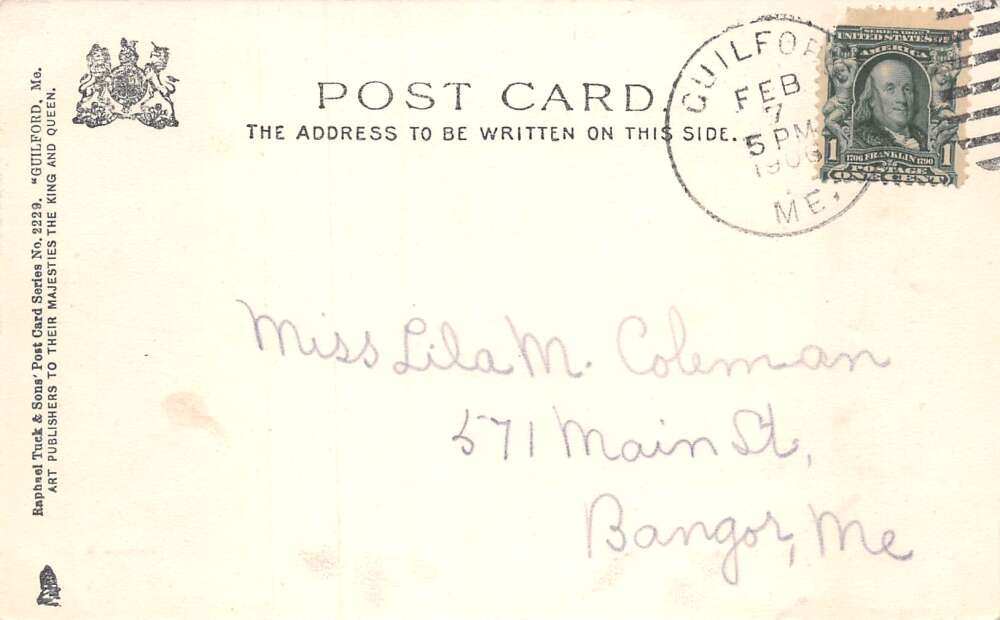 POST CARD.
THE ADDRESS TO BE WRITTEN ON THIS SIDE.
GUILFORD
FEB
7
5 PM
1906
ME.
SERIES 1902
UNITED STATES OF
AMERICA
1 1706 FRANKLIN 1790 1
POSTAGE
ONE CENT
Raphael Tuck & Sons' Post Card Series No. 2229. "GUILFORD, Me.
ART PUBLISHERS TO THEIR MAJESTIES THE KING AND QUEEN.
Miss Lila M. Coleman
571 Main St,
Bangor, Me